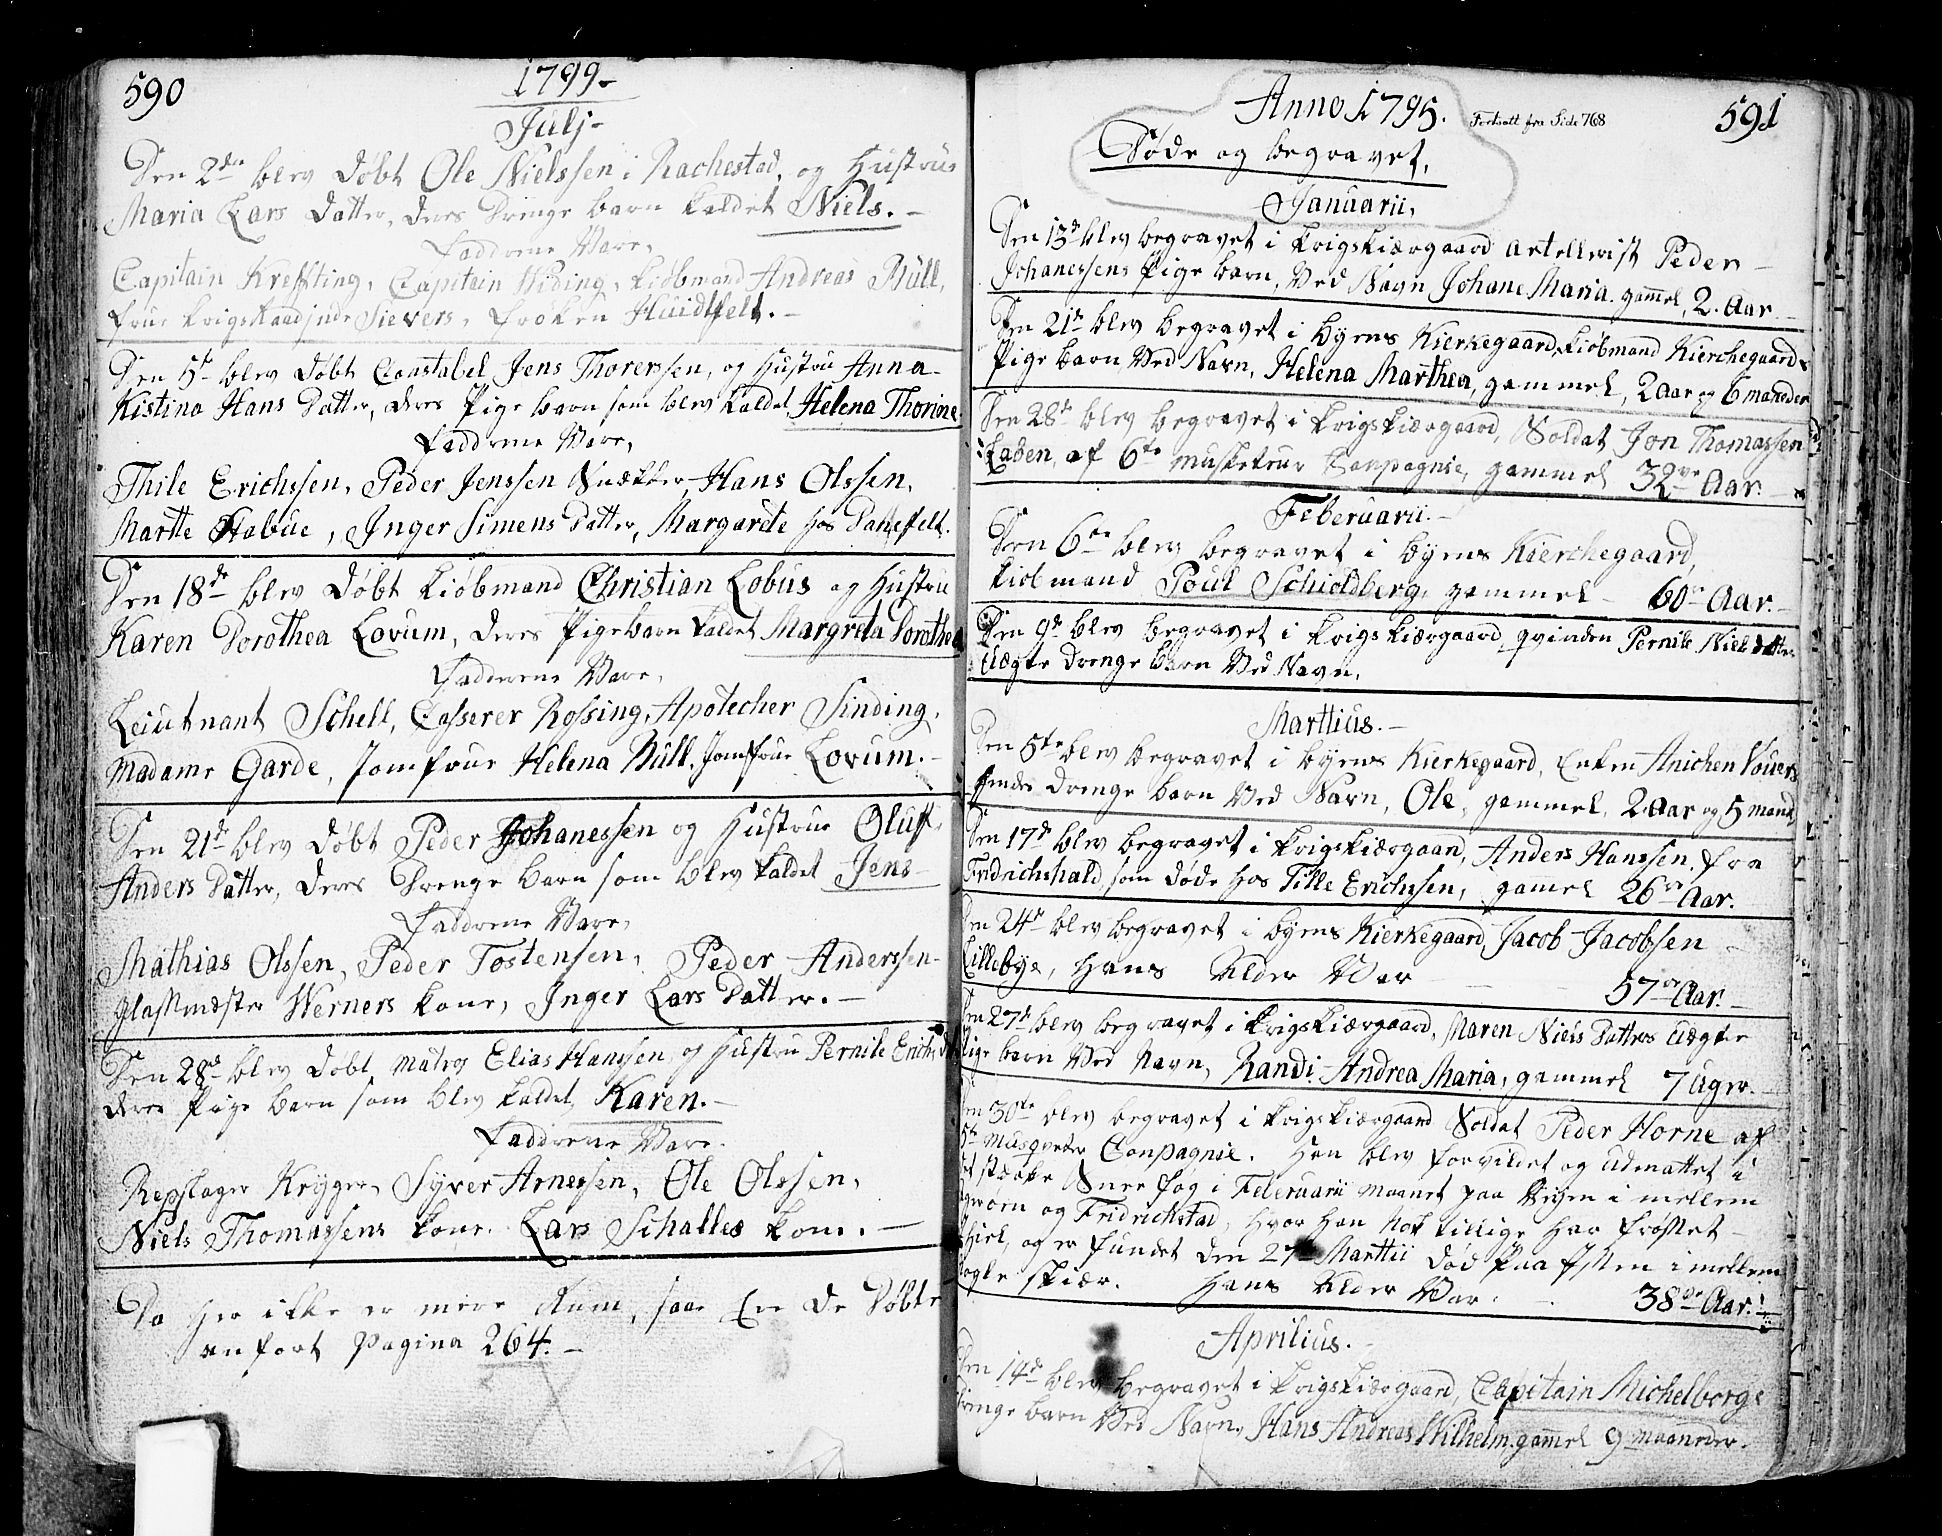 590
1799-
Julj-
Den 2den blev Døbt Ole Nielssen i Rachestad, og Hustrue
Maria Lars Datter, deres Drenge barn kaldet Niels.-
Faddrene Vare,
Capitain Kreffting, Capitain Widing, kiøbmand Andreas Büll,
frue krigs Sievers, frøken Huidtfelt.-
Den 5te blev Døbt Constabel Jens Thorersen, og Hustru Anna-
Kistina Hans Datter, deres Pige barn som blev kaldet Helena Thorine
Faddrene Vare,
Thile Erichssen, Peder Jenssen Snækker, Hans Olssen,
Marthe Habue, Inger Simens Datter, Margarete hos Panefelt.
Den 18de blev Døbt kiøbmand Christian Lobus og Hustru
Karen Dorothea Lorum, deres Pigebarn kaldet Margreta Dorothea
Faddrene Vare,
Leiutnant Schell, Casserer Rossing, Apotecher Sinding,
Madame Garde, Jomfrue Helena Büll, Jomfrue Lorum.-
Den 21de blev Døbt Peder Johanessen og Hustrue Oluf
Anders Datter, deres Drenge barn som blev kaldet Jens-
Faddrene Vare,
Mathias Olssen, Peder Tostensen, Peder Anderssen-
Glassmæster Werners kone, Inger Lars Datter.-
Den 28de blev Døbt Matros Elias Hanssen og Hustru Pernile Erichs
deres Pige barn som blev kaldet Karen.-
Faddrene Vare.
Repslager Krÿger, Syver Arnessen, Ole Olssen,
Niels Thomassens kone. Lars Schalles kone.-
Da her ikke er mere Rum, saa Ere de Døbte
anført Pagina 264.-
Anno 1795. Fortsatt fra Side 768
591
Døde og begravet,
Januarii,
Den 13de blev begravet i krigskiærgaard Artellerist Peder-
Johanessens Pige barn, Ved Navn Johane Maria. gammel, 2. Aar-
Den 21de blev begravet i byens Kierkegaard, kiøbmand Kierchegaards
Pige barn Ved Navn, Helena Marthea, gammel, 2 Aar og 6 maaneder
Den 28de blev begravet i krigskiærgaard, Soldat Jon Thomassen
Laden, af 6te Musketeur Compagnie, gammel 32ve Aar.-
Feberuarii.-
Den 6te blev begravet i byens Kierchegaard,
kiøbmand Poul Schioldberg, gammel- 60 Aar.-
Den 9de blev begravet i krigskiærgaard, qvinden Pernile Niels datter
Uægte drenge barn Ved Navn,
Marttius.-
Den 5te blev begravet i byens Kierkegaard, Enken Anichen
drenge barn Ved Navn, Ole, gammel, 2 Aar og 5 maand
Den 17de blev begravet i krigskiærgaar, Anders Hanssen, fra
Fridrichshald, som døde hos Tille Erichssen, gamel 26 Aar.
Den 24de blev begravet i byens Kierkegaard, Jacob Jacobsen-
Lillebye, Hans Alder Var - - 57 Aar.-
Den 27de blev begravet i krigskiærgaard, Maren Niels Datters Uægte
Pige barn Ved Navn, Randi Andrea Maria, gammel 7 Uger.-
Den 30te blev begravet i krigskiærgaard Soldat Peder Horne af
5te Musqveter Conpagnie. Han blev forvildet og Udmattet i
et stærke Snee fog i Feleruarii maanet paa Veyen i mellem
og Fridrichstad, hvor han Nok tillige har frosset-
ihiel, og er fundet den 27de Marttii død paa Issen i mellem
skiær. Hans Alder Var. - 38de Aar.-
Aprilius.-
Den 14de blev begravet i krigskiærgaard, Capitain Michelborgs
Drenge barn Ved Navn, Hans Andreas Wilhelm, gammel 9 maaneder.